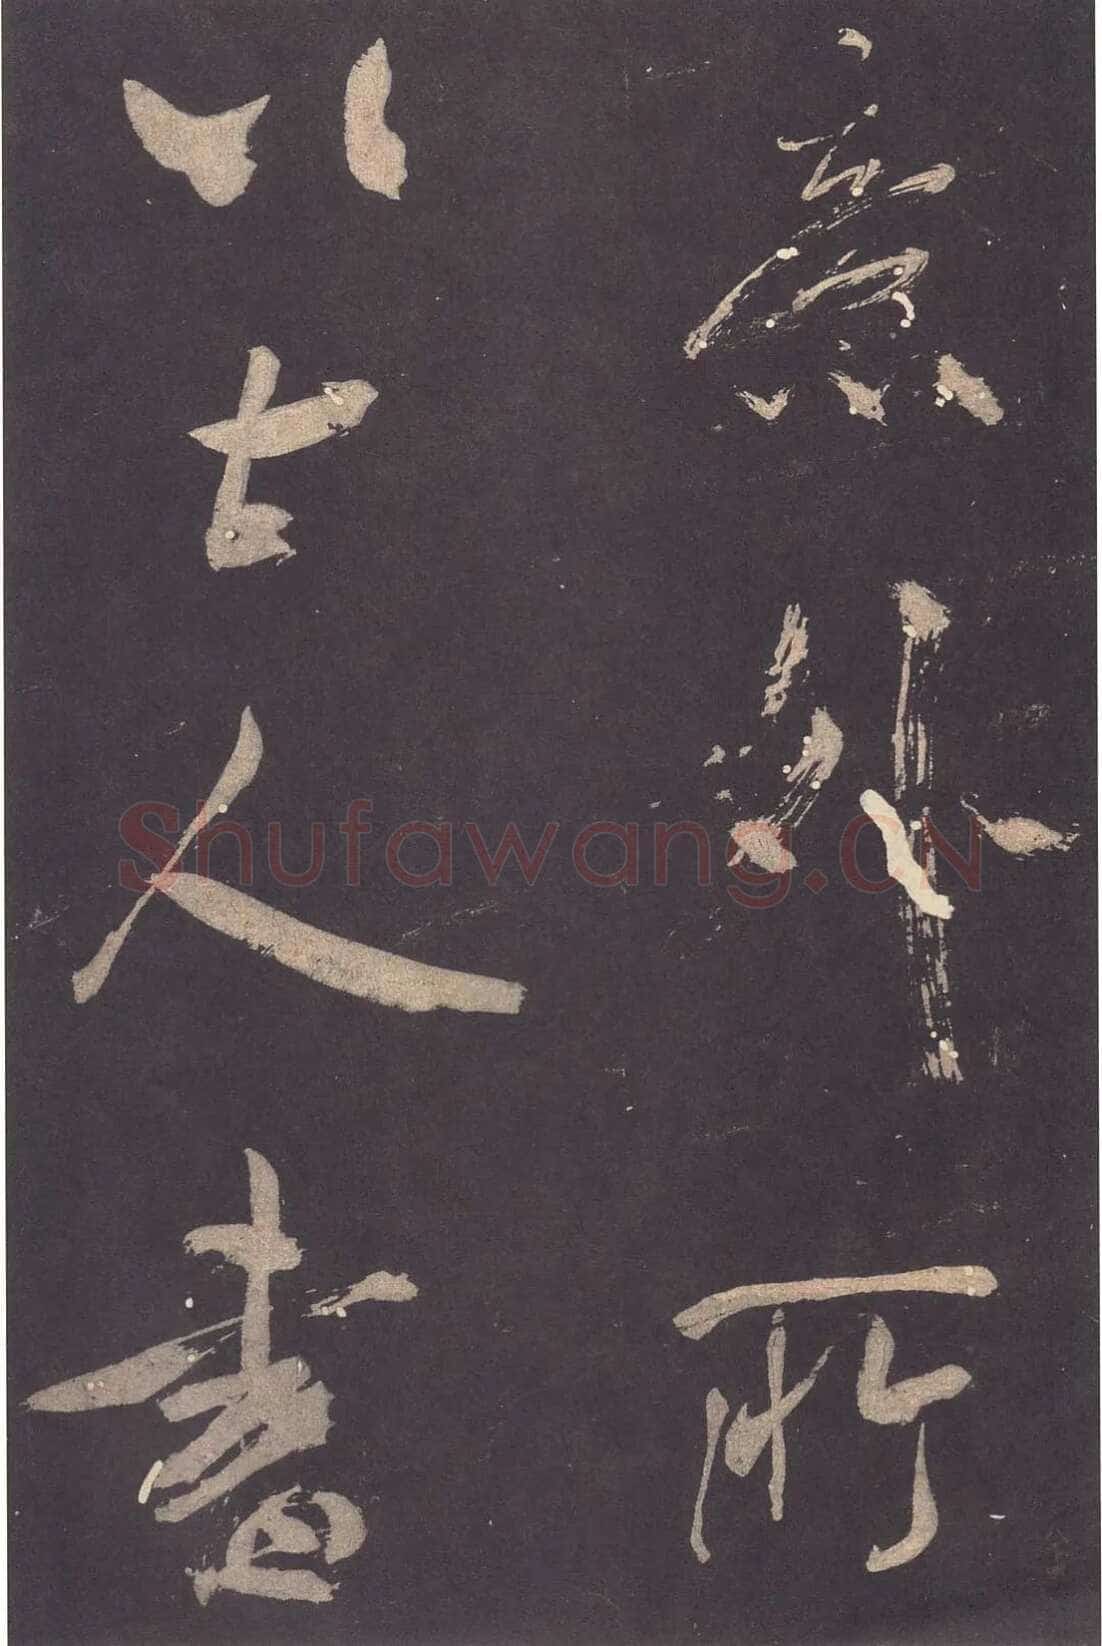 意外所
以古人書
Shufawang.CN